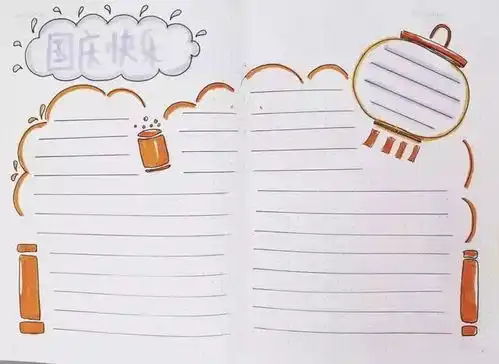 国庆快乐